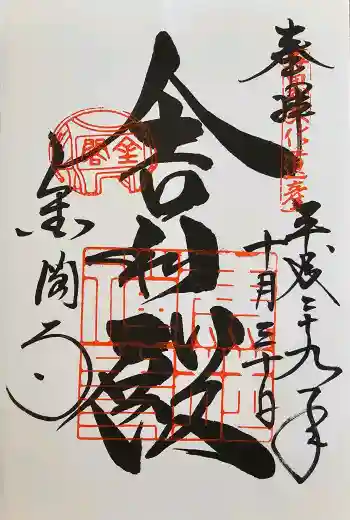 奉拝
平成二十九年
十月三十日
舎利殿
金閣寺
金閣